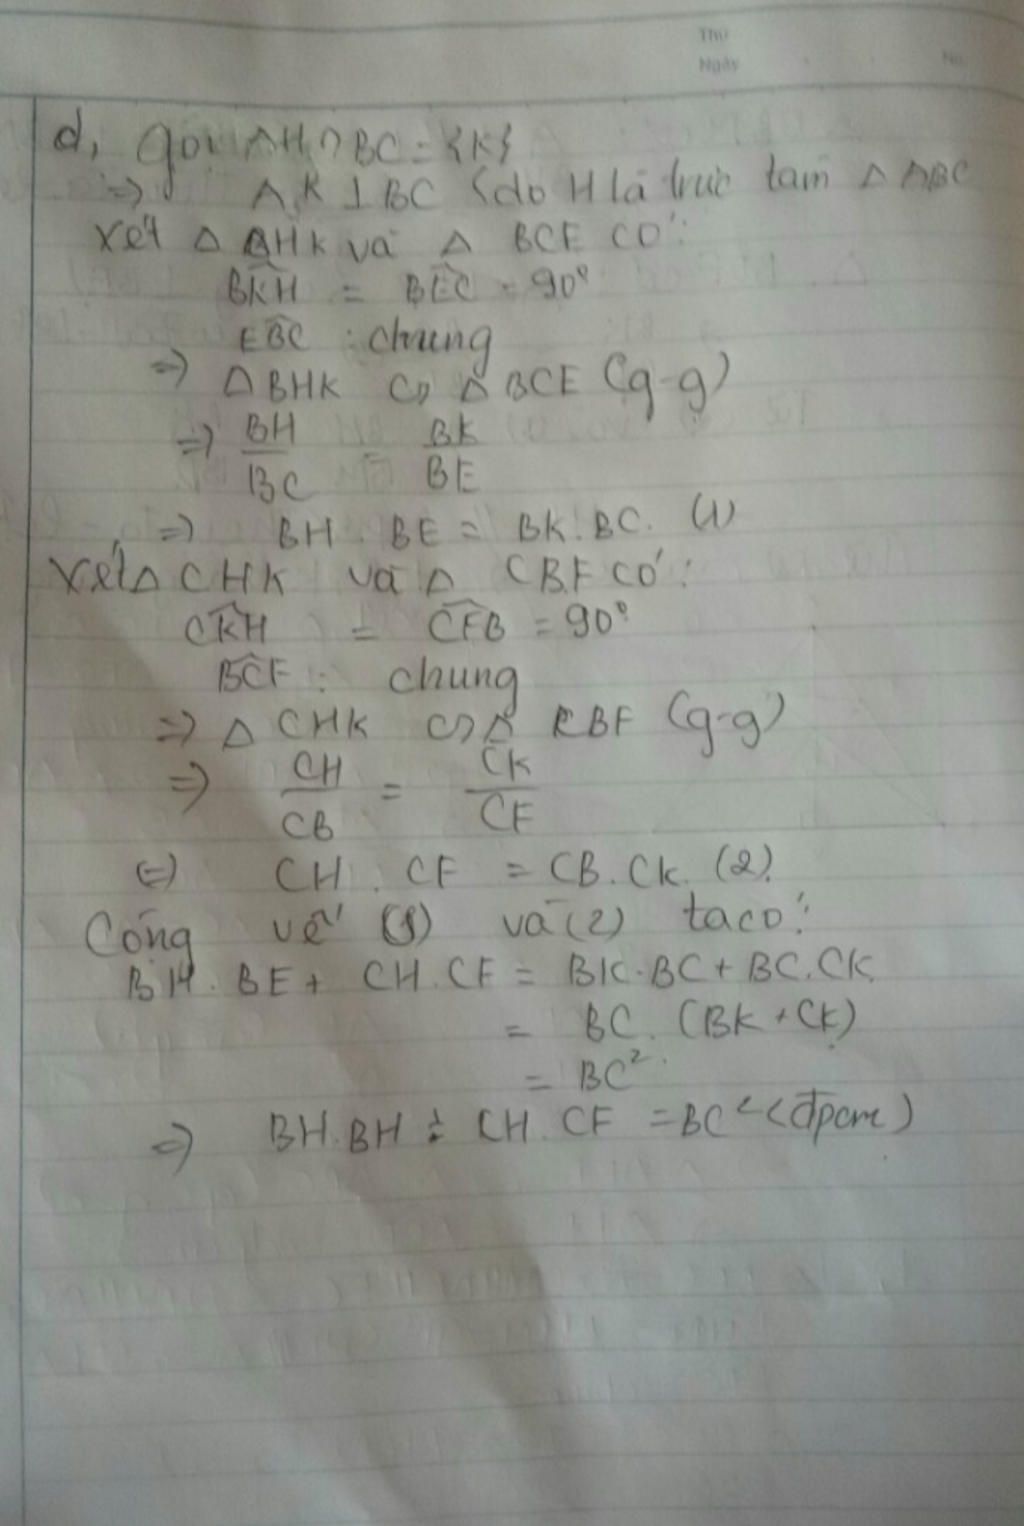 Thứ
Ngày
No.
d, gọi AH ∩ BC = {K}
=> AK ⊥ BC (do H là trực tâm Δ ABC
xét Δ BHK và Δ BCE CÓ:
BKH = BEC = 90°
EBC : chung
=> Δ BHK ∽ Δ BCE (g-g)
=> BH/BC = BK/BE
=> BH . BE = BK . BC. (1)
Xét Δ CHK và Δ CBF CÓ:
CKH = CFB = 90°
BCF : chung
=> Δ CHK ∽ Δ CBF (g-g)
=> CH/CB = CK/CF
(=) CH . CF = CB . CK. (2).
Cộng vế (1) và (2) ta có:
BH . BE + CH . CF = BK . BC + BC . CK
= BC . (BK + CK)
= BC².
=> BH . BH + CH . CF = BC² (đpcm)